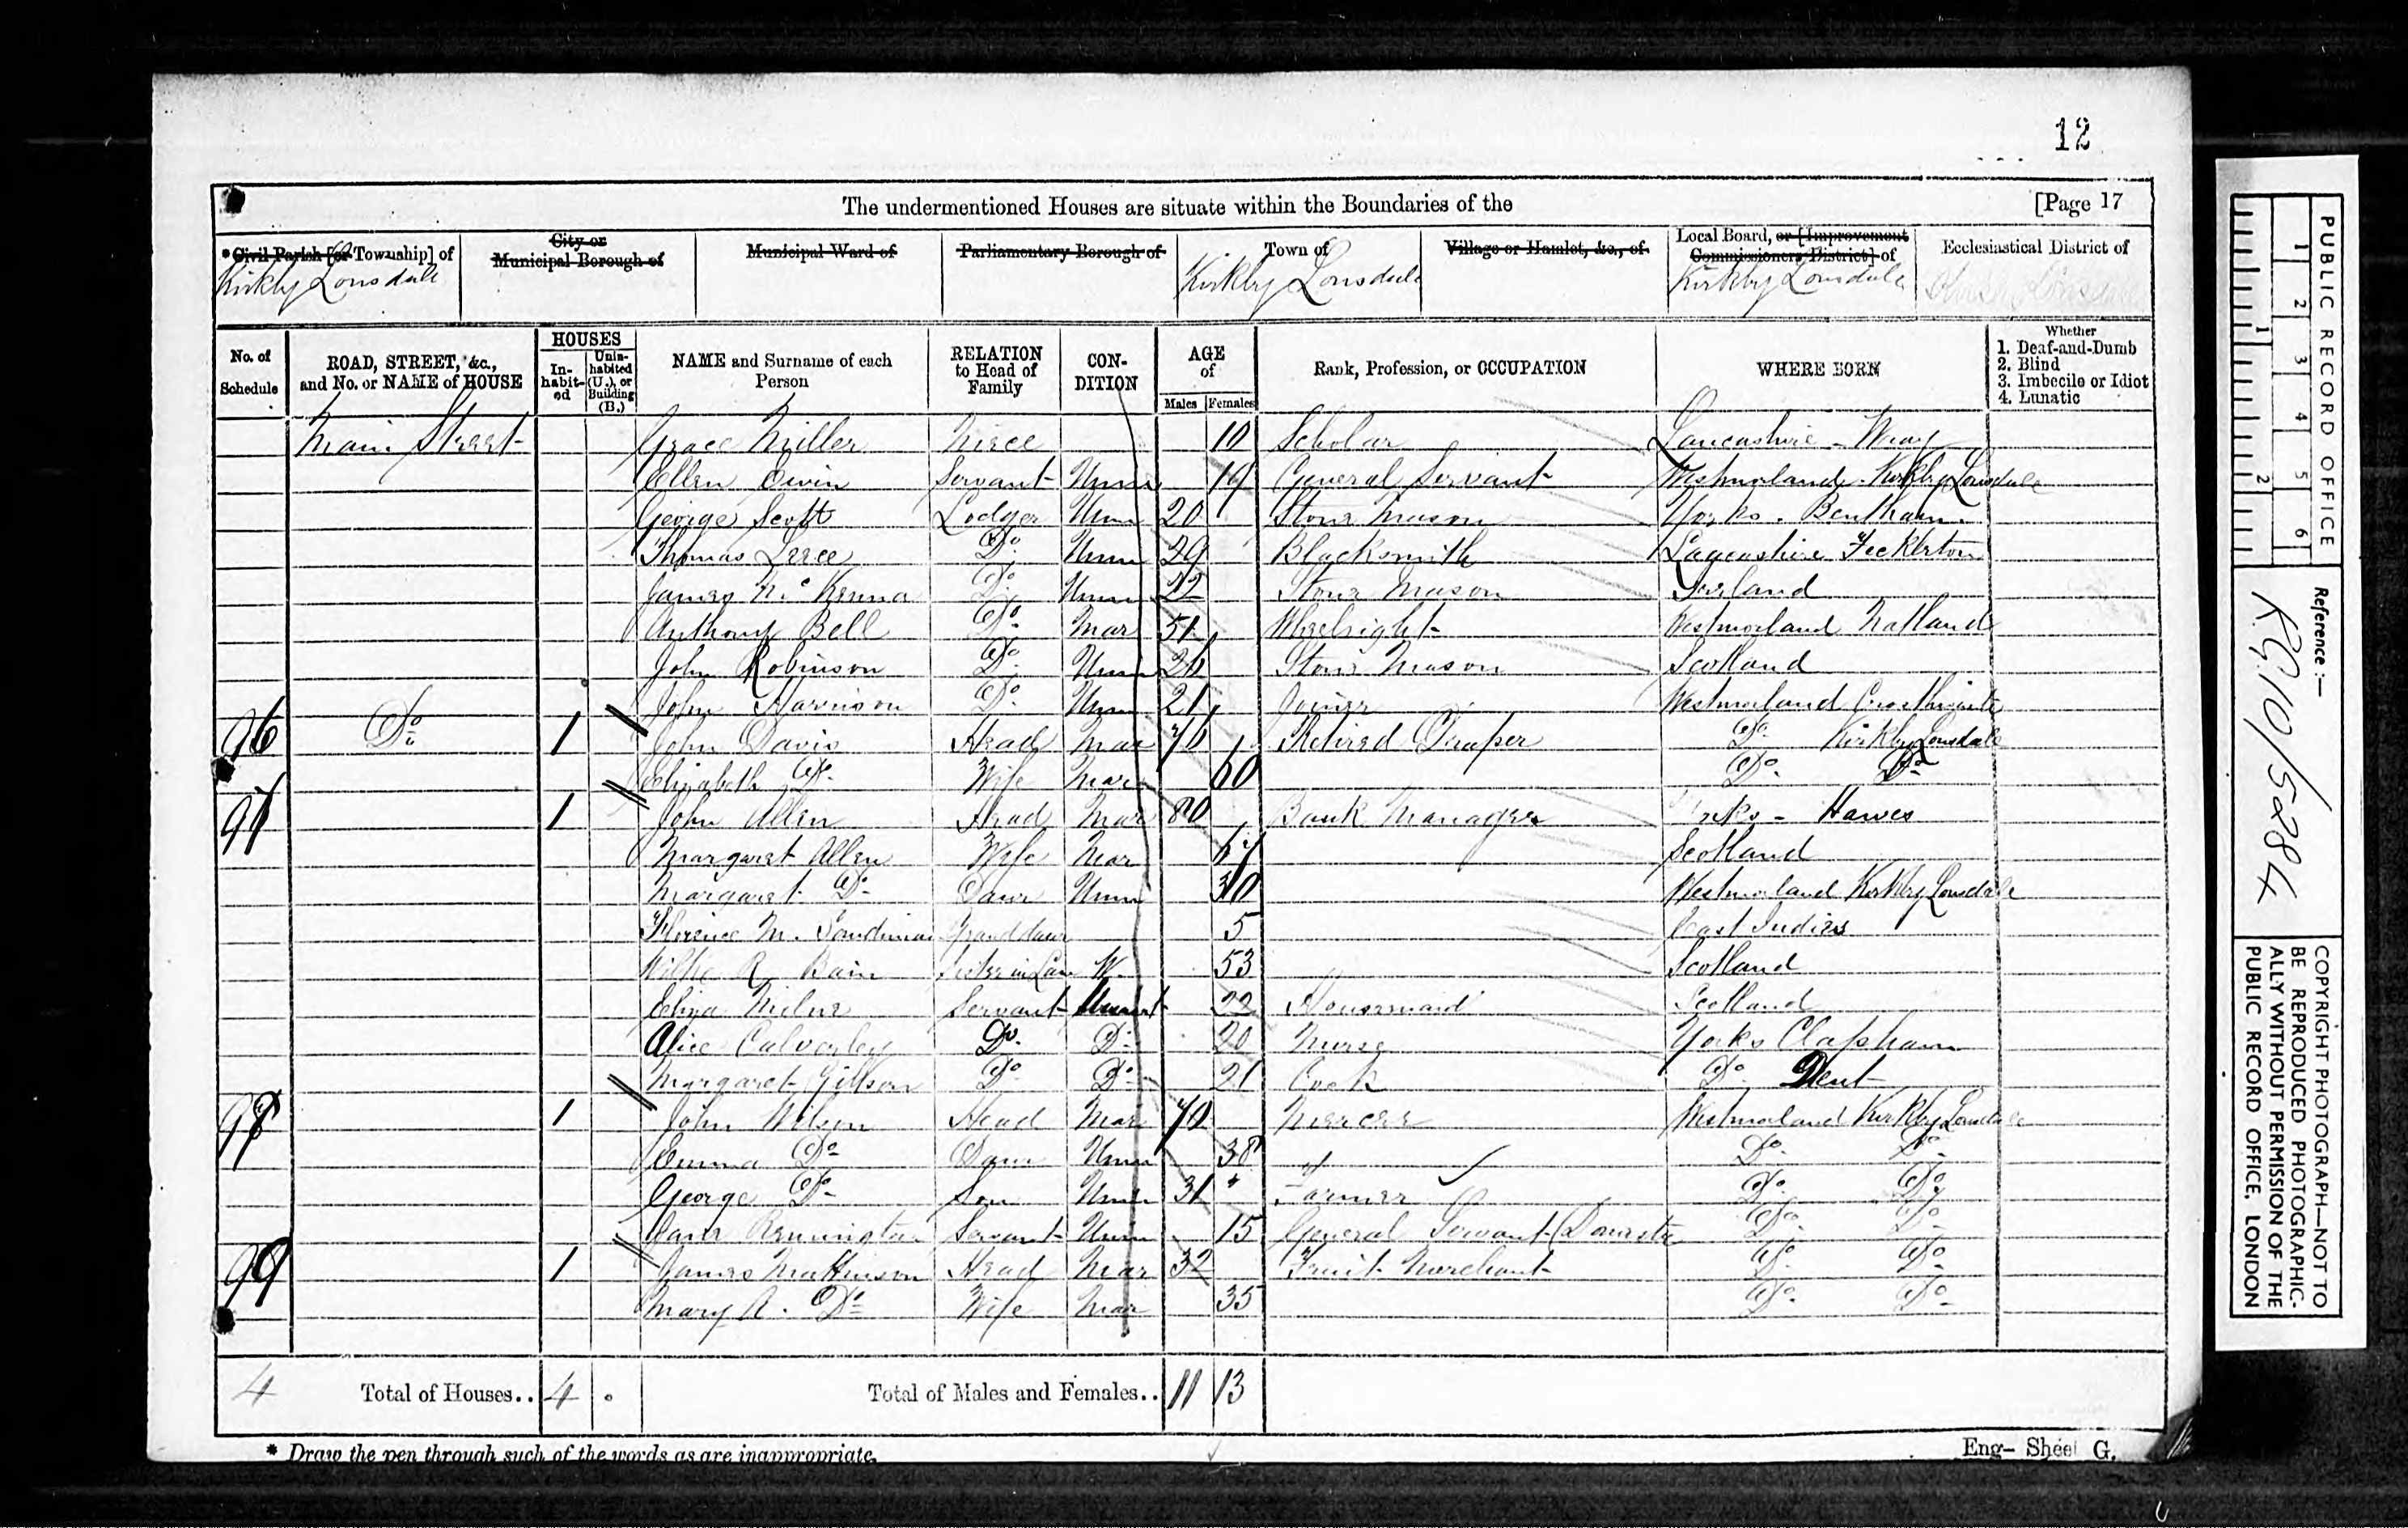 12
The undermentioned Houses are situate within the Boundaries of the [Page 17
*Civil Parish [or Township] of City or Municipal Borough of Municipal Ward of Parliamentary Borough of Town of Village or Hamlet, &c., of Local Board, or [Improvement Commissioners District] of Ecclesiastical District of
Kirkby Lonsdale Kirkby Lonsdale Kirkby Lonsdale
No. of Schedule ROAD, STREET, &c., and No. or NAME of HOUSE HOUSES Inhabited Uninhabited (U.), or Building (B.) NAME and Surname of each Person RELATION to Head of Family CONDITION AGE of Males Females Rank, Profession, or OCCUPATION WHERE BORN Whether 1. Deaf-and-Dumb 2. Blind 3. Imbecile or Idiot 4. Lunatic
Main Street Grace Miller Niece 10 Scholar Lancashire - Wray
Ellen Servant Unm 19 General Servant Westmorland Kirkby Lonsdale
George Scott Lodger Unm 20 Stone Mason Yorks. Bentham
Thomas Do Unm 29 Blacksmith Lancashire
James McKenna Do Unm 22 Stone Mason
Anthony Bell Do Mar 51 Wheelright Westmorland Natland
John Robinson Do Unm 26 Stone Mason Scotland
John Harrison Do Unm 21 Joiner Westmorland Crosthwaite
96 Do 1 John Davis Head Mar 76 Retired Draper Do Kirkby Lonsdale
Elizabeth Do Wife Mar 60 Do Do
97 1 John Allen Head Mar 80 Bank Manager Yorks - Hawes
Margaret Allen Wife Mar 67 Scotland
Margaret Do Daur Unm 30 Westmorland Kirkby Lonsdale
Florence M. Grand daur 5 East Indies
R Bain Sister in Law W. 53 Scotland
Eliza Milne Servant Unm 22 Housemaid Scotland
Alice Calverley Do Do 20 Nurse Yorks Clapham
Margaret Do Do 21 Cook Do Dent
98 1 John Wilson Head Mar 70 Mercer Westmorland Kirkby Lonsdale
Emma Do Daur Unm 38 Do Do
George Do Son Unm 31 Farmer Do Do
Jane Remington Servant Unm 15 General Servant Domestic Do Do
99 1 James Mattinson Head Mar 32 Fruit Merchant Do Do
Mary A. Do Wife Mar 35 Do Do
4 Total of Houses.. 4 Total of Males and Females.. 11 13
* Draw the pen through such of the words as are inappropriate.
Eng- Sheet G.
PUBLIC RECORD OFFICE
1 2 3 4 5 6
1 2
Reference :-
R.G.10/5284
COPYRIGHT PHOTOGRAPH—NOT TO
BE REPRODUCED PHOTOGRAPHIC-
ALLY WITHOUT PERMISSION OF THE
PUBLIC RECORD OFFICE, LONDON